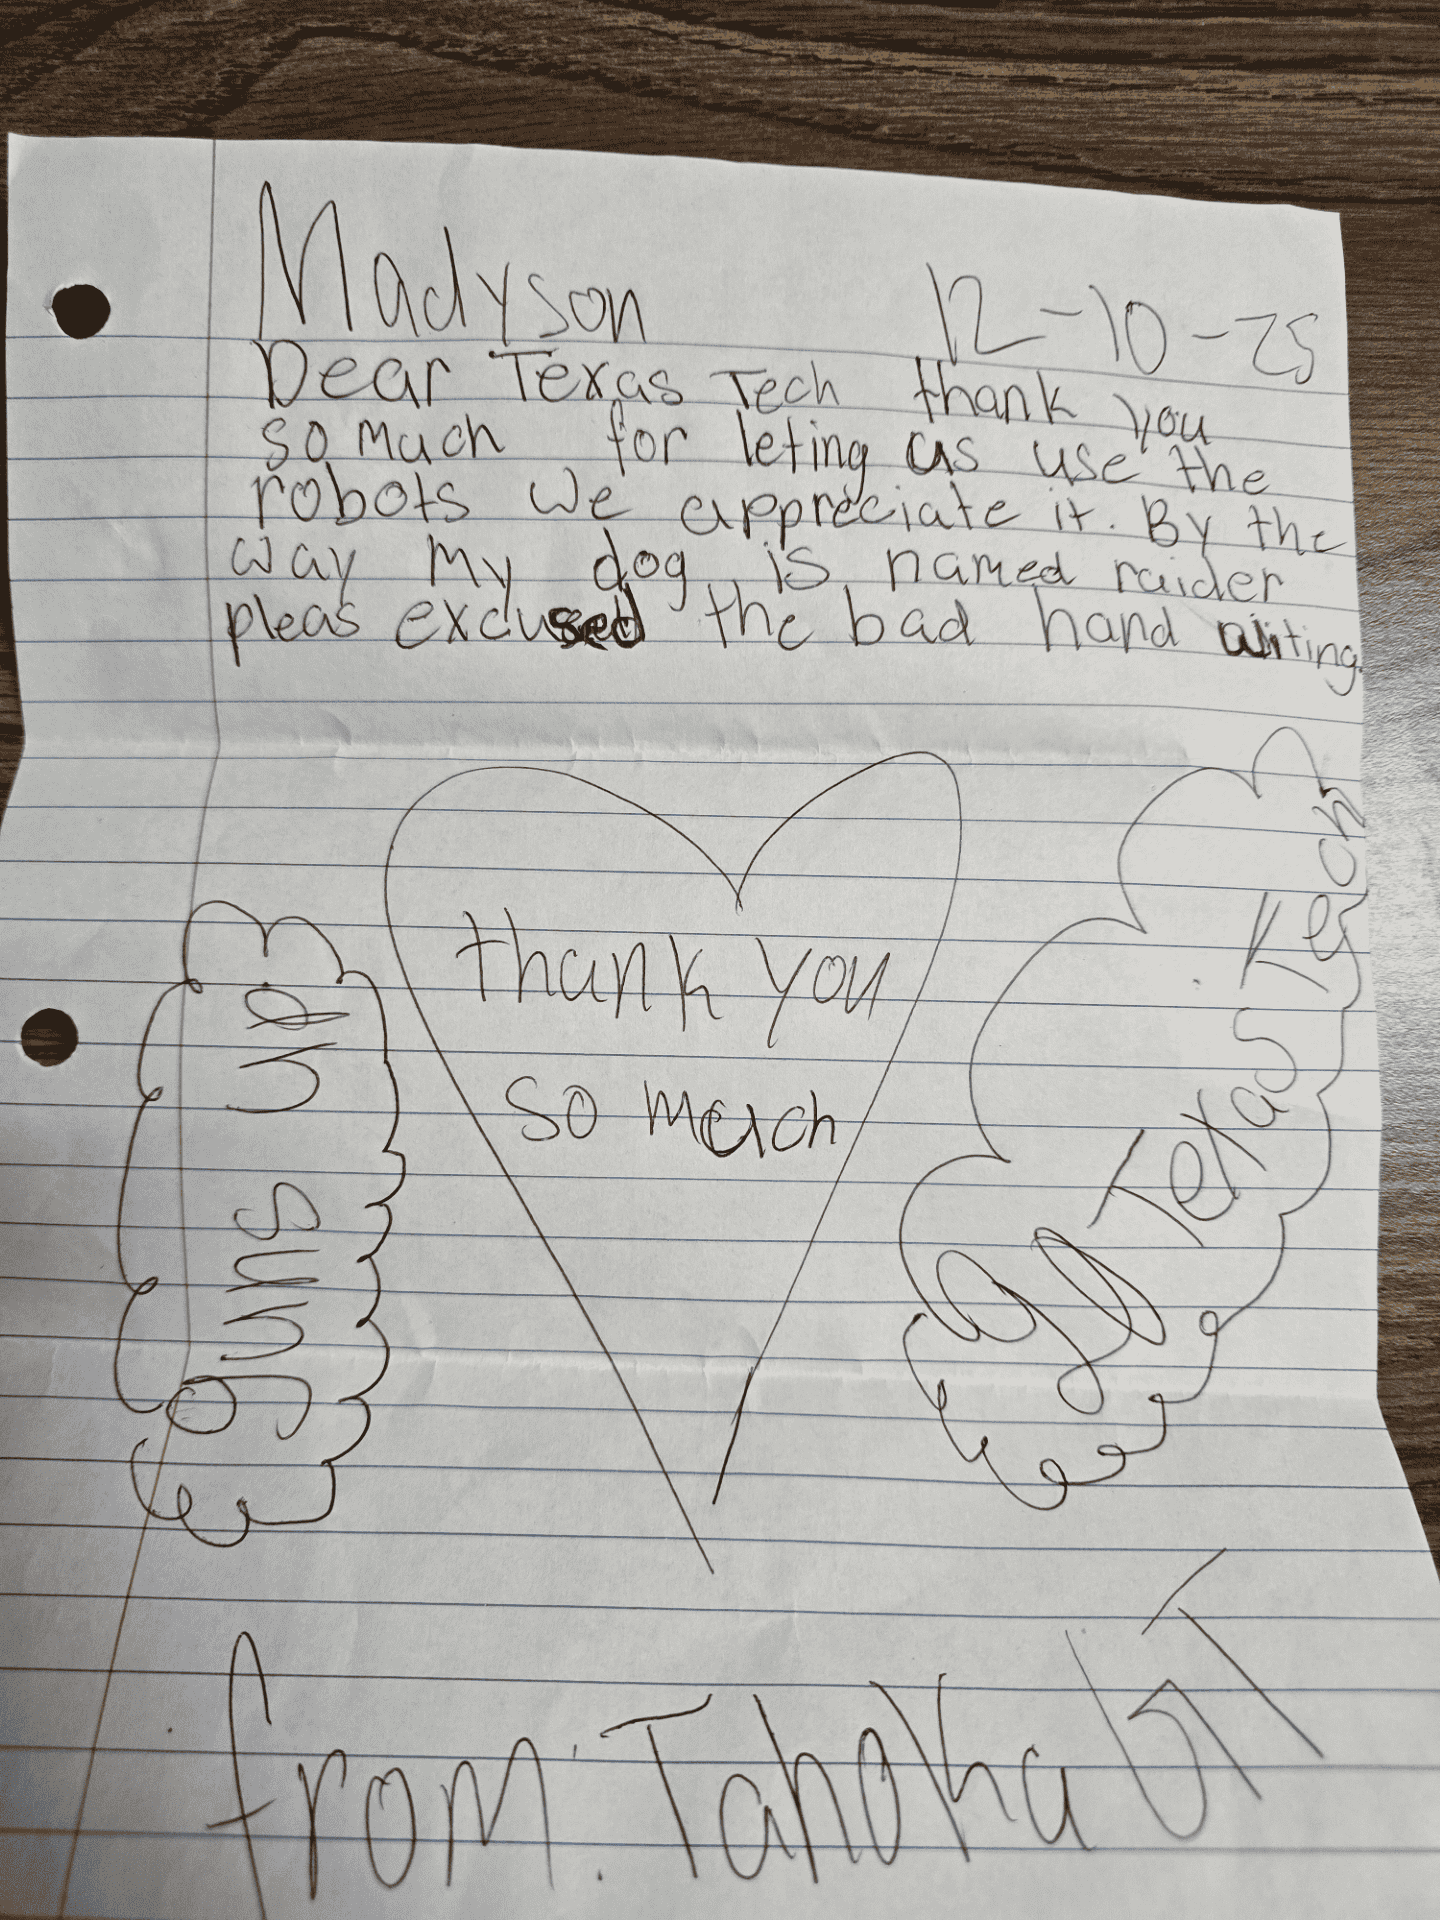 Madyson 12-10-25
Dear Texas Tech thank you
so much for leting us use the
robots we appreciate it. By the
way my dog is named raider
pleas excused the bad hand witing.
thank you
so much
guns up
go Texas Tech
from: Tahoka GT